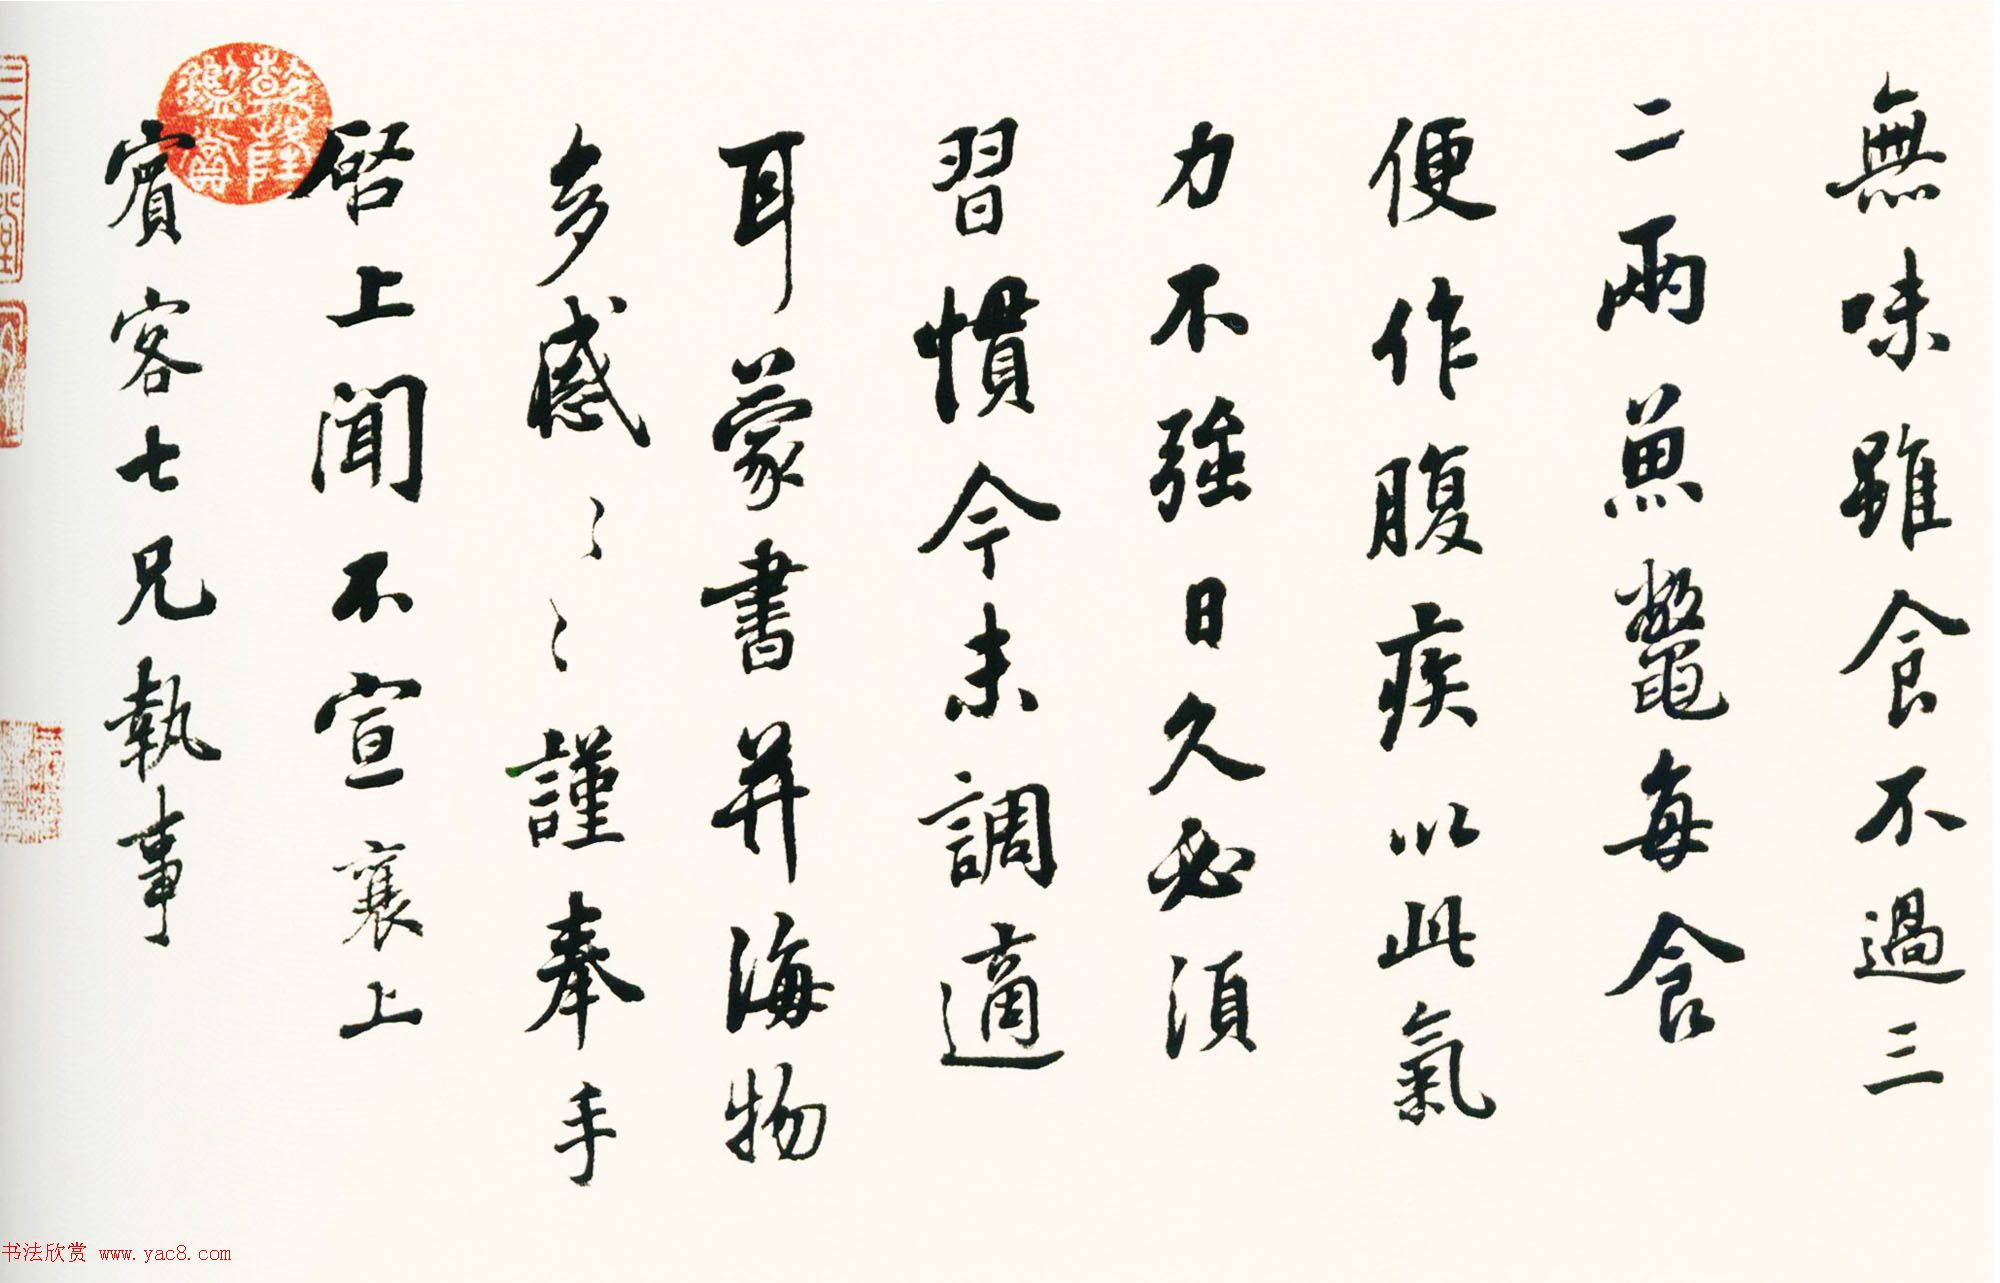 無味雖食不過三
二兩魚鼈每食
便作腹疾以此氣
力不強日久必須
習慣今未調適
耳蒙書并海物
多感〻〻謹奉手
啓上聞不宣襄上
賓客七兄執事
乾隆鑑賞
三希堂
书法欣赏 www.yac8.com